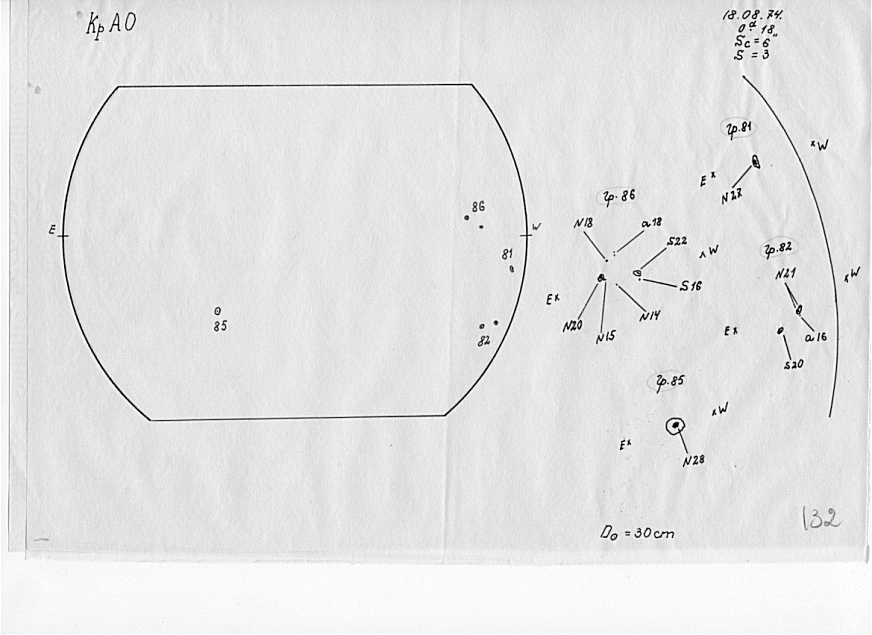 КрАО
18.08.74.
0ᵈ.18
Sc = 6"
S = 3
гр.81
W
E
N27
гр.86
N18
a18
S22
W
S16
E
N20
N15
N14
гр.82
N21
W
E
a16
S20
86
E
W
81
85
82
гр.85
W
E
N28
D₀ = 30cm
132